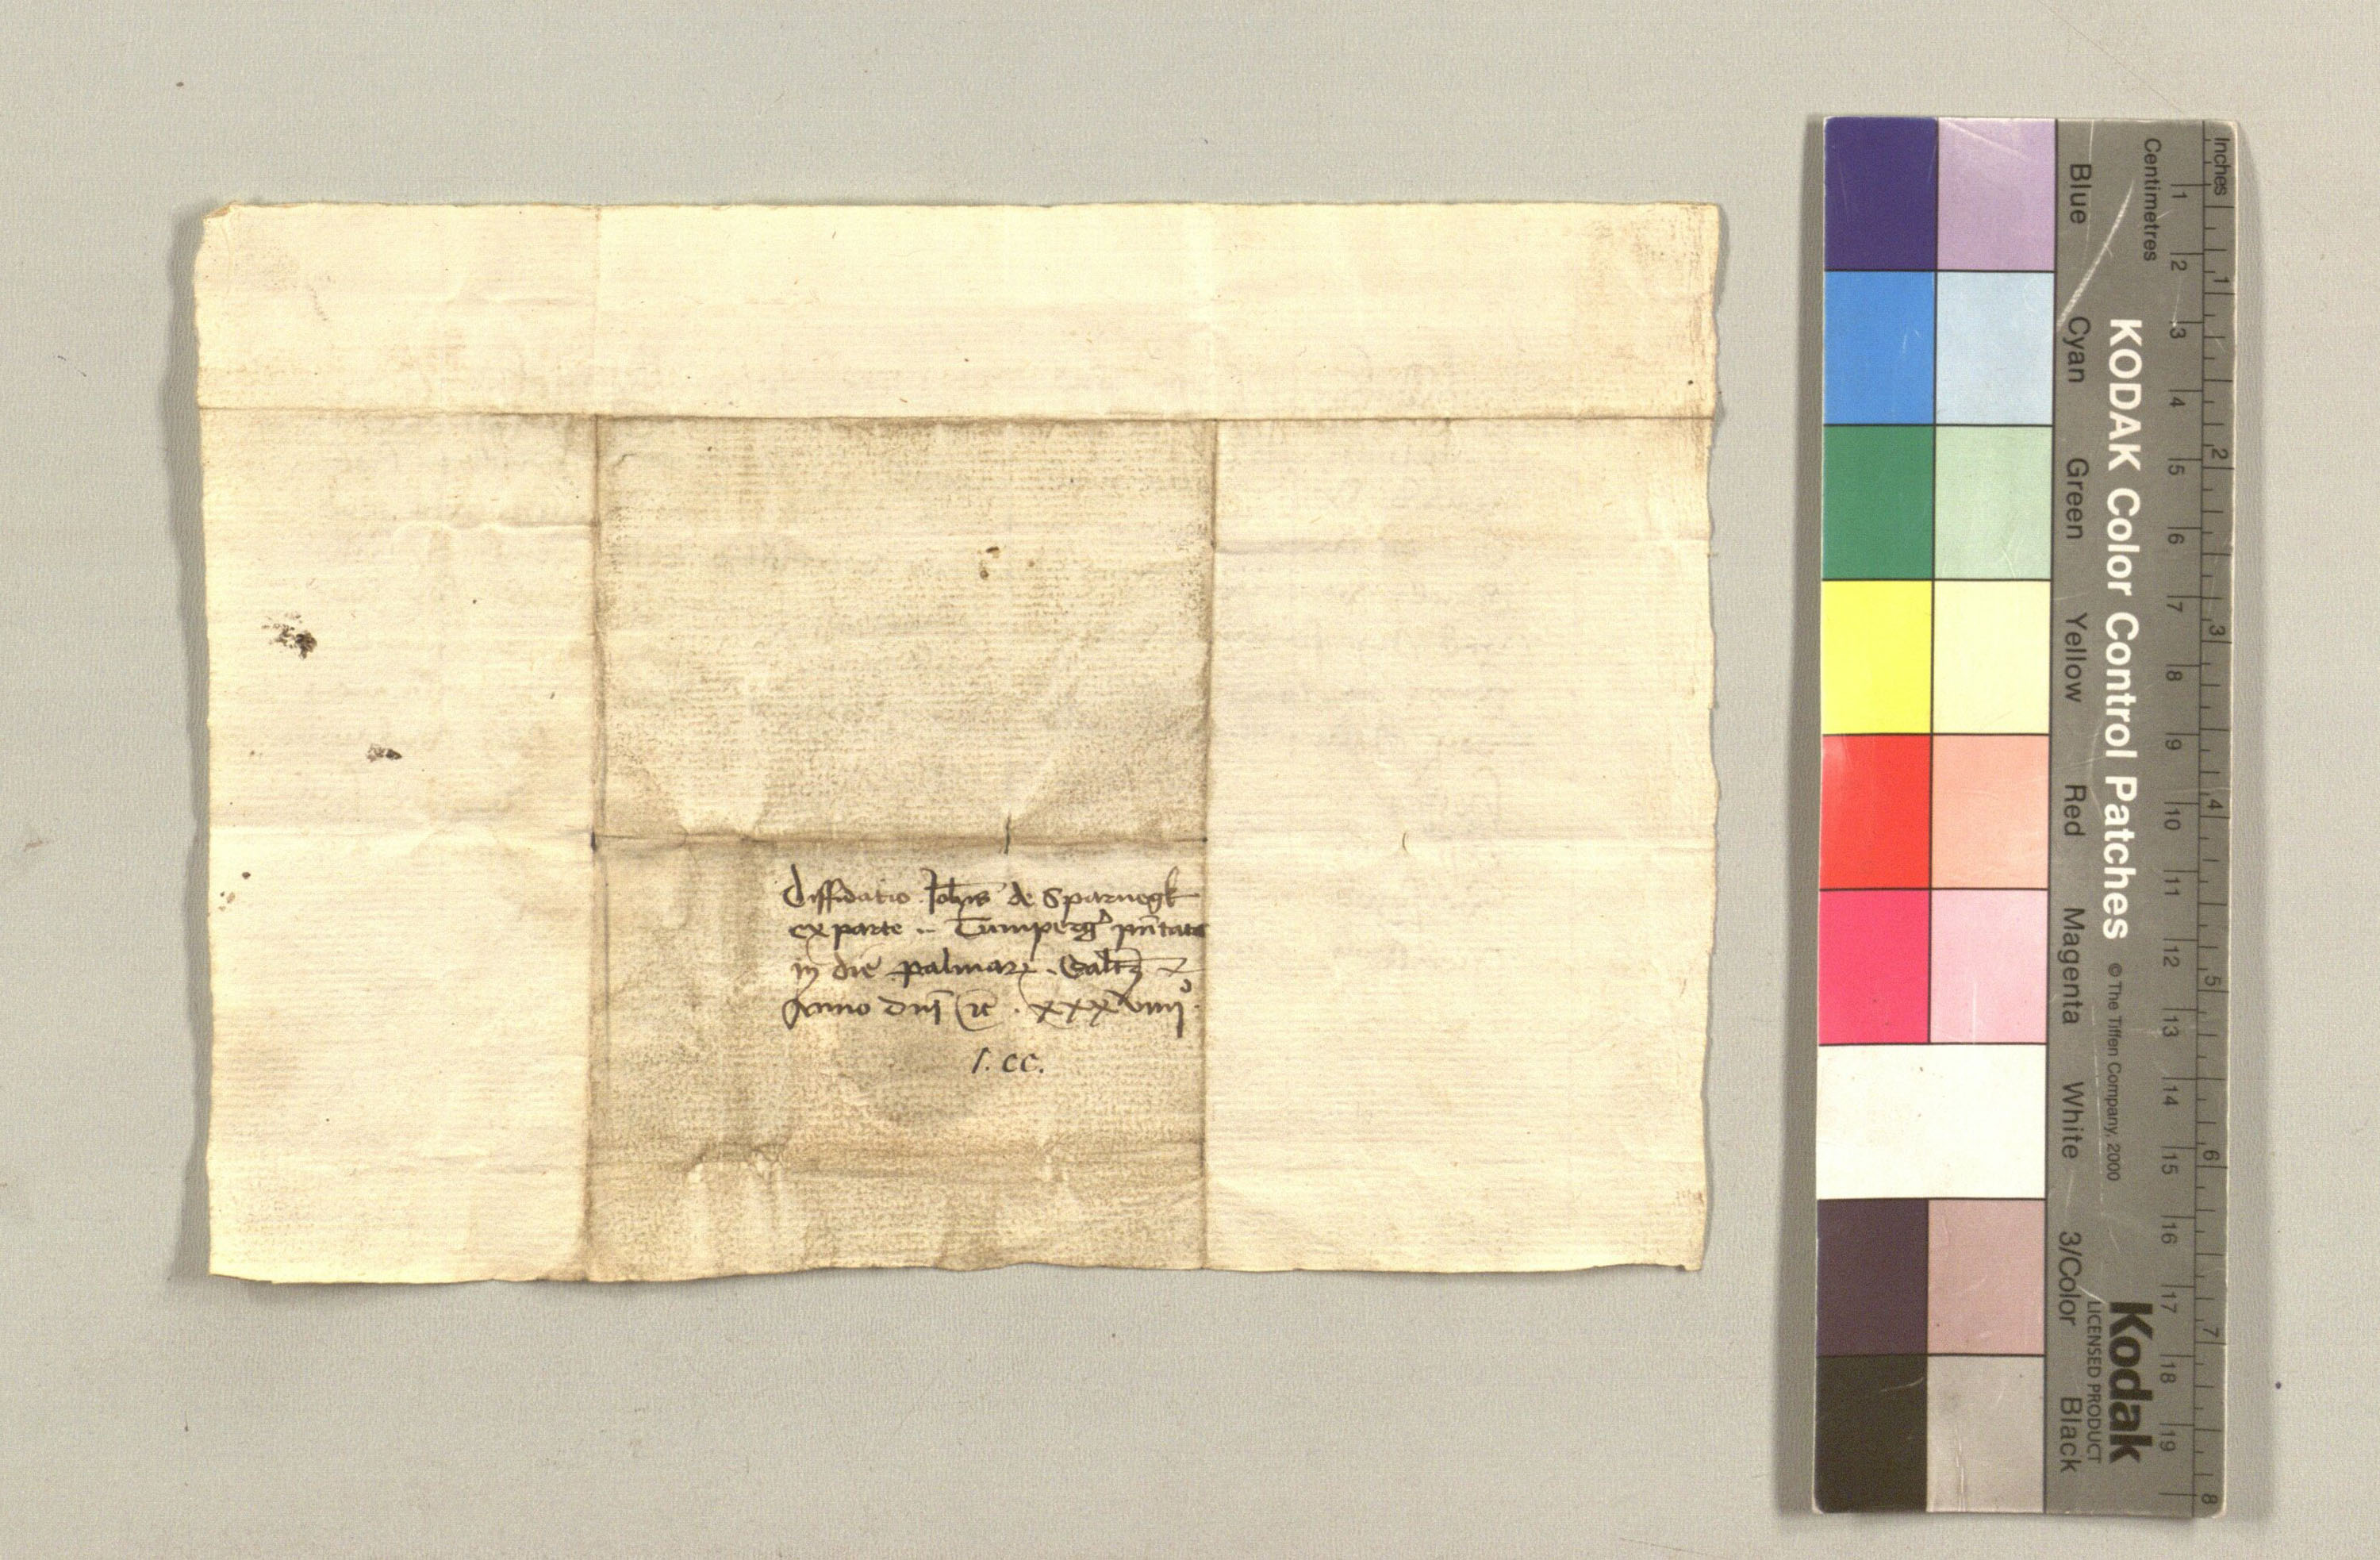 diffidatio Joh̄is de Sparnegk
ex parte .. Tumperg̕ pn̄tata
in die palmaꝝ
Anno dn̄i ⁊c̄ . xxxviiijº.
1. CC.
Inches
Centimetres
1 2 3 4 5 6 7 8
1 2 3 4 5 6 7 8 9 10 11 12 13 14 15 16 17 18 19
KODAK Color Control Patches © The Tiffen Company, 2000
Kodak
LICENSED PRODUCT
Blue Cyan Green Yellow Red Magenta White 3/Color Black